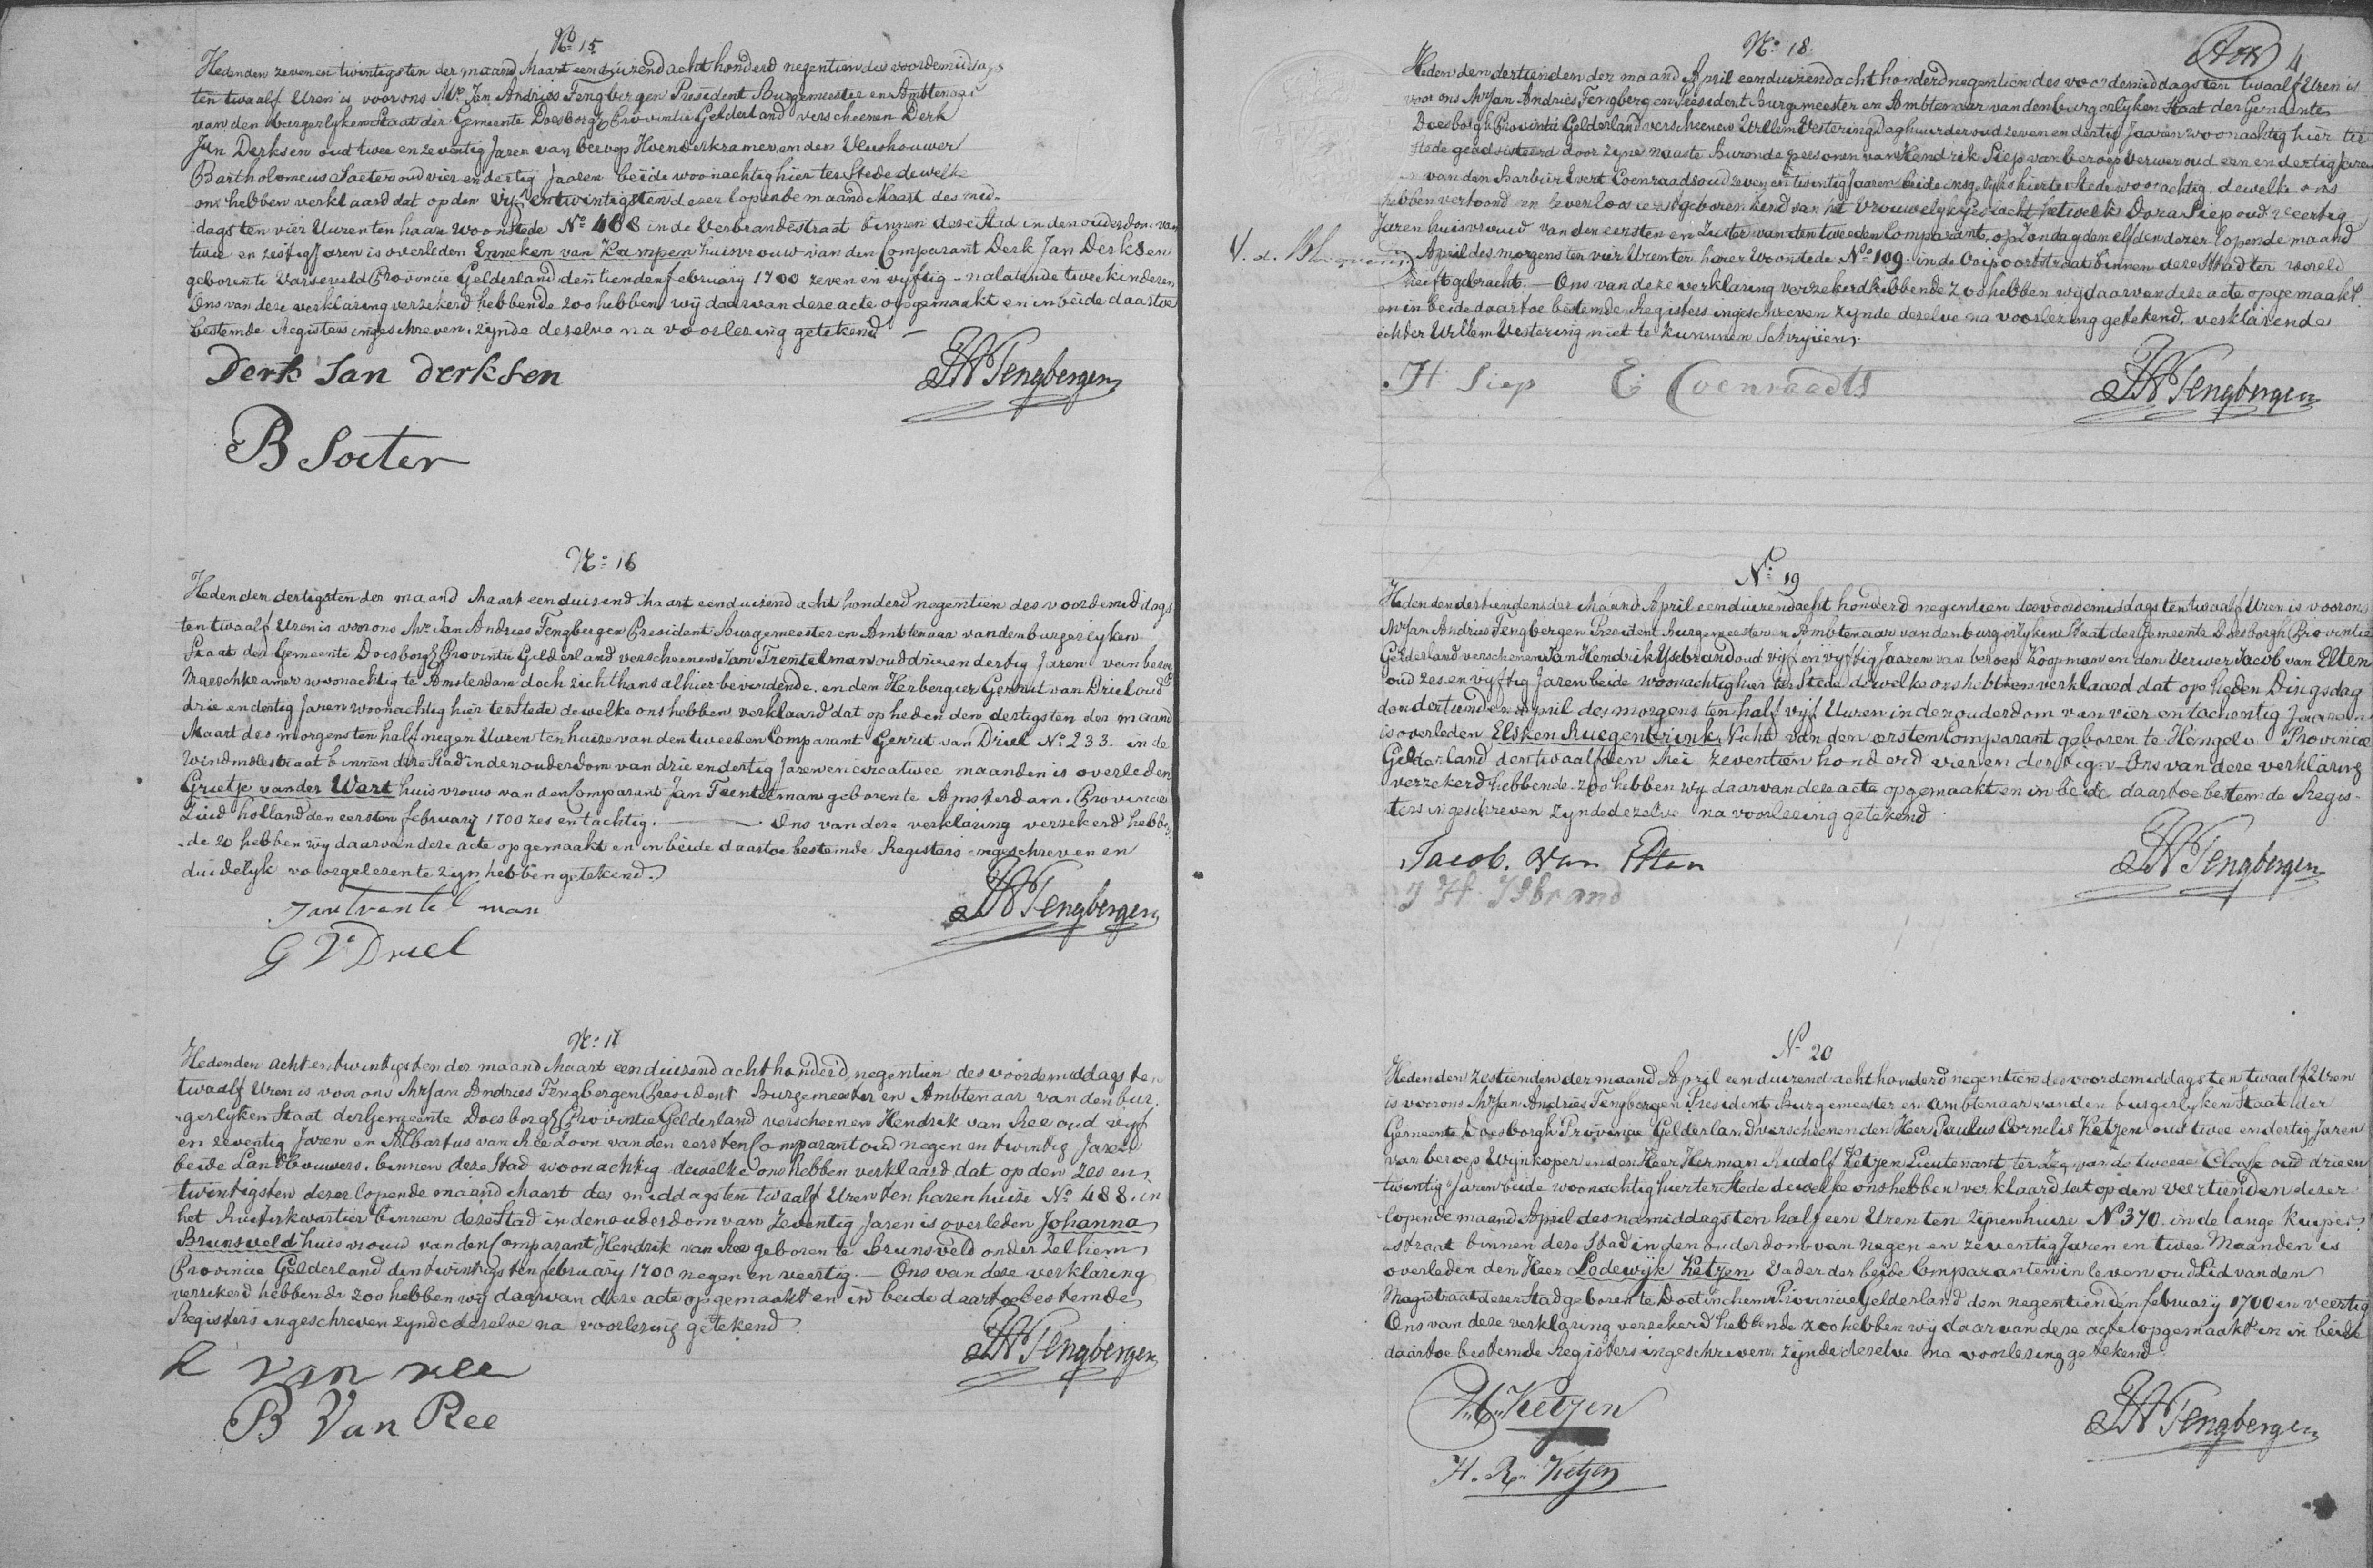 No 15
Heden den zeven en twintigsten der maand Maart eenduizend acht honderd negentien des voordemiddags
ten twaalf Uren is voor ons Mr. Jan Andries Tengbergen President Burgemeester en Ambtenaar
van den burgerlyken Staat der Gemeente Doesborgh Provintie Gelderland verscheenen Derk
Jan Derksen oud twee en zeventig Jaren van beroep Hoenderkramer en den Vleeshouwer
Bartholomeus Soeter oud vier en dertig Jaaren beide woonachtig hier ter Stede dewelke
ons hebben verklaard dat op den vyf en twintigsten dezer lopende maand Maart des mid-
dags ten vier Uuren ten haare woonstede No 468 in de Verbrandestraat binnen deze Stad in den ouderdom van
twee en zestig Jaren is overleden Enneken van Kampen huisvrouw van den Comparant Derk Jan Derksen
geboren te Varseveld Provincie Gelderland den tienden february 1700 zeven en vyftig - nalatende twee kinderen
Ons van deze verklaring verzekerd hebbende zoo hebben wij daarvan deze acte opgemaakt en in beide daartoe
bestemde Registers ingeschreven, zijnde dezelve na voorlezing getekend -
Derk Jan derksen
JATengbergen
B Soeter
No 16
Heden den dertigsten der maand Maart eenduisend Maart eenduizend acht honderd negentien des voordemiddags
ten twaalf Uren is voor ons Mr. Jan Andries Tengbergen President Burgemeester en Ambtenaar van den burgerlyken
Staat der Gemeente Doesborgh Provintie Gelderland verscheenen Jan Trentelman oud drie en dertig Jaren van beroep
Marschkramer woonachtig te Amsterdam doch zich thans alhier bevindende, en den Herbergier Gerrit van Driel oud
drie en dertig Jaren woonachtig hier ter Stede dewelke ons hebben verklaard dat op heden den dertigsten der maand
Maart des morgens ten half negen Uuren ten huize van den tweeden Comparant Gerrit van Driel No 233. in de
Windmolestraat binnen deze Stad in den ouderdom van drie en dertig Jaren en circa twee maanden is overleden
Grietje vander Wart huisvrouw van den Comparant Jan Trentelman geboren te Amsterdam Provincie
Zuid holland den eersten february 1700 zes en tachtig. — Ons van deze verklaring verzekerd hebben
de zo hebben wij daarvan deze acte opgemaakt en in beide daartoe bestemde Registers ingeschreven en
duidelyk voorgelezen te zyn hebben getekend.
Jan trentel man
JATengbergen
G V Driel
No 17
Heden den acht en twintigsten der maand Maart eenduizend acht honderd negentien des voordemiddags ten
twaalf Uren is voor ons Mr Jan Andries Tengbergen President Burgemeester en Ambtenaar van den bur-
gerlyken Staat der Gemeente Doesborgh Provintie Gelderland verscheenen Hendrik van Ree oud vyf
en zeventig Jaren en Albartus van Ree Zoon van den eersten Comparant oud negen en twintig Jaren
beide Landbouwers binnen deze Stad woonachtig dewelke ons hebben verklaard dat op den zes en
twintigsten dezer lopende maand Maart des middags ten twaalf Uren ten harenhuize No 488 in
het Ruiterkwartier binnen deze Stad in den ouderdom van Zeventig Jaren is overleden Johanna
Brunsveld huisvrouw van den Comparant Hendrik van Ree geboren te Brunsveld onder Zelhem
Provincie Gelderland den twintigsten february 1700 negen en veertig. — Ons van deze verklaring
verzekerd hebbende zoo hebben wij daarvan deze acte opgemaakt en in beide daartoe bestemde
Registers ingeschreven zynde dezelve na voorlezing getekend
van ree
JATengbergen
B Van Ree
No 18.
4
Heden den dertienden der maand April eenduizend acht honderd negentien des voordemiddags ten twaalf Uren is
voor ons Mr Jan Andries Tengbergen President Burgemeester en Ambtenaar van den burgerlyken Staat der Gemeente
Doesborgh Provintie Gelderland verscheenen Willem Vestering Daghuurder oud zeven en dertig Jaaren woonachtig hier ter
Stede geadsisteerd door zijne naaste Buren de personen van Hendrik Siep van beroep Verwer oud een en dertig Jaren
en van den Barbier Evert Coenraads oud zeven en twintig Jaaren beide insgelyks hier ter Stede woonachtig, dewelke ons
hebben vertoond een levenloos eerstgeboren kind van het Vrouwelyk geslacht hetwelk Dora Siep oud veertig
Jaren huisvrouw van den eersten en Zuster van den tweeden Comparant, op Zondag den elfden dezer lopende maand
April des morgens ten vier Uren ter harer Woonstede No 109. in de Ooipoortstraat binnen deze Stad ter wereld
heeft gebracht. — Ons van deze verklaring verzekerd hebbende zoo hebben wij daarvan deze acte opgemaakt
en in beide daartoe bestemde Registers ingeschreven zynde dezelve na voorlezing getekend, verklarende
echter Willem Vestering niet te kunnen Schryven.
H Siep E Coenraadts
JATengbergen
No 19
Heden den dertienden der Maand April eenduizend acht honderd negentien des voordemiddags ten twaalf Uren is voor ons
Mr Jan Andries Tengbergen President Burgemeester en Ambtenaar van den burgerlyken Staat der Gemeente Doesborgh Provintie
Gelderland verschenen Jan Hendrik Ysebrand oud vijf en vyftig Jaaren van beroep Koopman en den Verwer Jacob van Elten
oud zes en vyftig Jaren beide woonachtig hier ter Stede dewelke ons hebben verklaard dat op heden Dingsdag
den dertienden April des morgens ten half vyf Uuren in den ouderdom van vier en tachentig Jaaren
is overleden Elsken Ruegenbrink Nicht van den eersten Comparant geboren te Hengelo Provincie
Gelderland den twaalfden Mei zeventien honderd vier en dertig. - Ons van deze verklaring
verzekerd hebbende zoo hebben wij daarvan deze acte opgemaakt en in beide daartoe bestemde Regis-
ters ingeschreven zynde dezelve na voorlezing getekend
Jacob. van Elten
JATengbergen
J H. ISbrand
No 20
Heden den zestienden der maand April eenduizend acht honderd negentien des voordemiddags ten twaalf Uren
is voor ons Mr Jan Andries Tengbergen President Burgemeester en ambtenaar van den burgerlyken Staat der
Gemeente Doesborgh Provincie Gelderland verscheenen den Heer Paulus Cornelis Ketjen oud twee en dertig Jaren
van beroep Wijnkoper en den Heer Herman Rudolf Ketjen Lieutenant ter Zee van de tweede Classe oud drie en
twintig Jaren beide woonachtig hier ter Stede dewelke ons hebben verklaard dat op den veertienden dezer
lopende maand April des namiddags ten half een Uren ten zijnenhuize No 370. in de lange Kuiper
straat binnen deze Stad in den ouderdom van negen en zeventig Jaren en twee Maanden is
overleden den Heer Lodewijk Ketjen Vader der beide Comparanten in leven oud Lid van den
Magistraat dezer Stad geboren te Doetinchem Provincie Gelderland den negentienden february 1700 en veertig
Ons van deze verklaring verzekerd hebbende zoo hebben wij daarvan deze acte opgemaakt en in beide
daartoe bestemde Registers ingeschreven zijnde dezelve na voorlezing getekend
Ketjen
JATengbergen
H. R. Ketjen